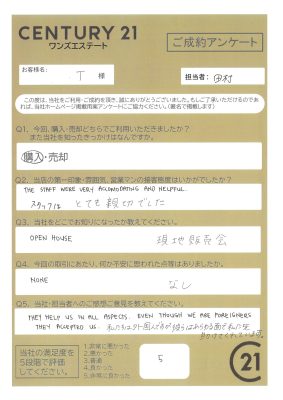 CENTURY 21
ワンズエステート
ご成約アンケート
お客様名: T 様
担当者: 田村
この度は、当社をご利用・ご成約を頂き、誠にありがとうございました。もしご了承いただけるのであれば、当社ホームページ掲載用アンケートにご協力ください。(匿名で掲載します)
Q1. 今回、購入・売却どちらでご利用いただきましたか?
また当社を知ったきっかけはなんですか。
購入・売却
Q2. 当店の第一印象・雰囲気、営業マンの接客態度はいかがでしたか?
THE STAFF WERE VERY ACCOMODATING AND HELPFUL.
スタッフは とても親切でした
Q3. 当社をどこでお知りになったか教えてください。
OPEN HOUSE 現地販売会
Q4. 今回の取引にあたり、何か不安に思われた点等はありましたか。
NONE なし
Q5. 当社・担当者へのご感想ご意見を教えてください。
THEY HELP US IN ALL ASPECTS. EVEN THOUGH WE ARE FOREIGNERS
THEY ACCEPTED US. 私たちは外国人ですが彼らはあらゆる面で私たちを
助けてくれています。
当社の満足度を
5段階で評価
してください。
1.非常に悪かった
2.悪かった
3.普通
4.良かった
5.非常に良かった
5
21